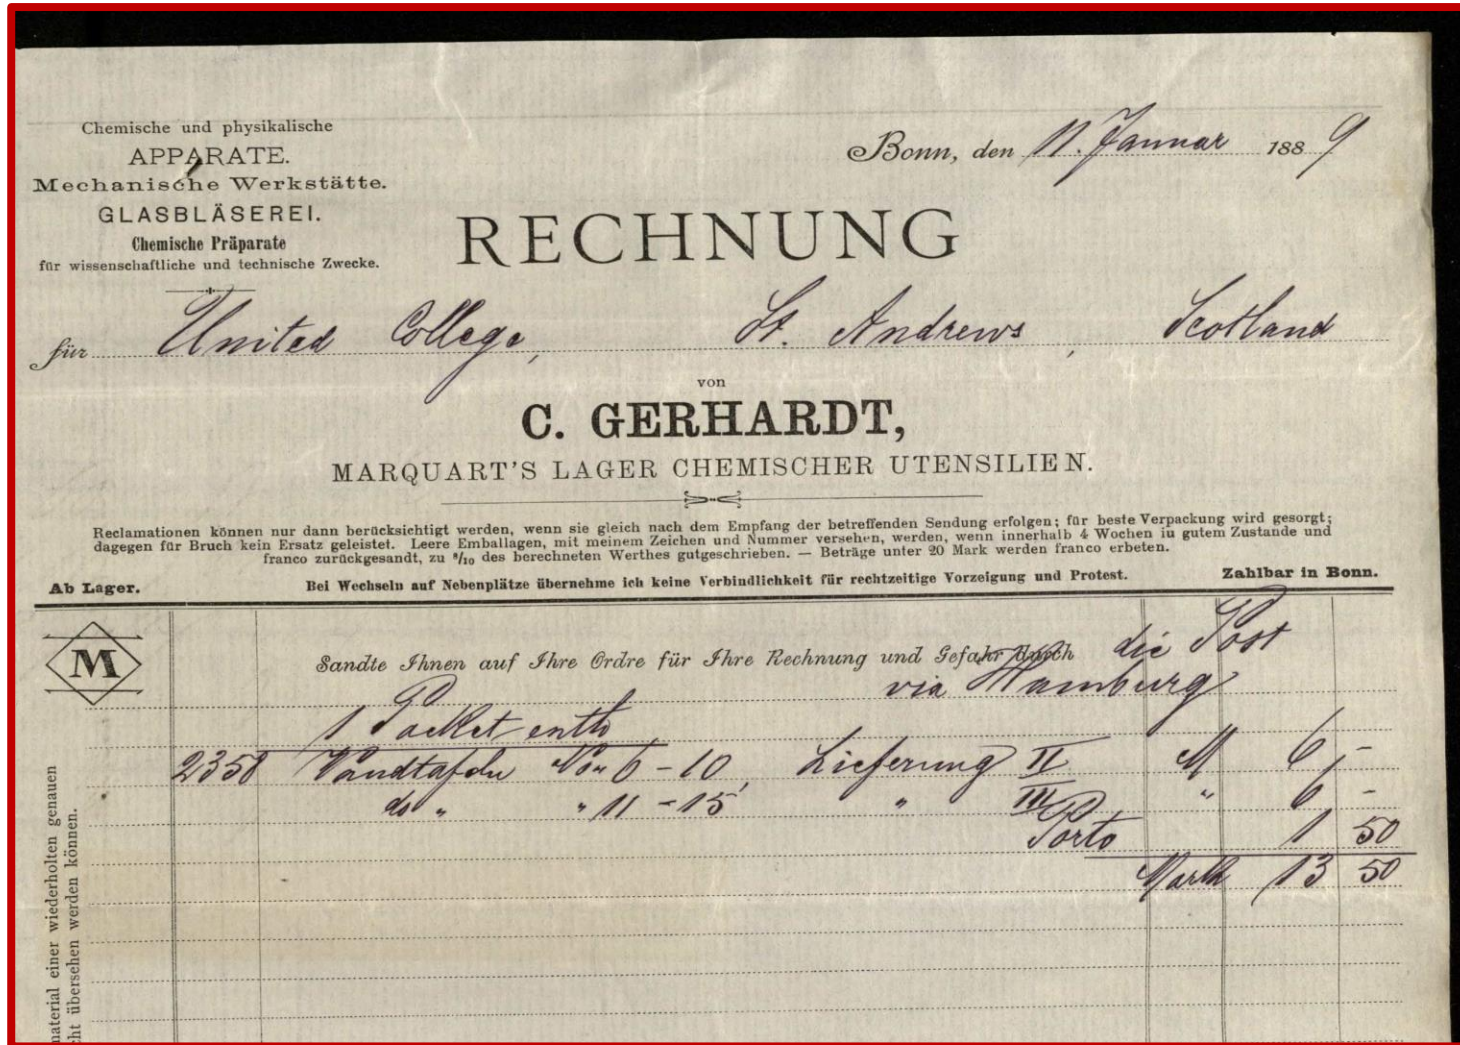 Chemische und physikalische
APPARATE.
Mechanische Werkstätte.
GLASBLÄSEREI.
Chemische Präparate
für wissenschaftliche und technische Zwecke.
Bonn, den 11. Januar 1889
RECHNUNG
für United College, St. Andrews, Scotland
von
C. GERHARDT,
MARQUART'S LAGER CHEMISCHER UTENSILIEN.
Reclamationen können nur dann berücksichtigt werden, wenn sie gleich nach dem Empfang der betreffenden Sendung erfolgen; für beste Verpackung wird gesorgt;
dagegen für Bruch kein Ersatz geleistet. Leere Emballagen, mit meinem Zeichen und Nummer versehen, werden, wenn innerhalb 4 Wochen in gutem Zustande und
franco zurückgesandt, zu /10 des berechneten Werthes gutgeschrieben. — Beträge unter 20 Mark werden franco erbeten.
Ab Lager. Bei Wechseln auf Nebenplätze übernehme ich keine Verbindlichkeit für rechtzeitige Vorzeigung und Protest. Zahlbar in Bonn.
M
Sandte Ihnen auf Ihre Ordre für Ihre Rechnung und Gefahr durch die Post
via Hamburg
1 Packet enth
2350 Wandtafeln No. 6 - 10, Lieferung II M 6,-
do " " 11 - 15 " III " 6,-
Porto 1 50
Mark 13 50
material einer wiederholten genauen
cht übersehen werden können.